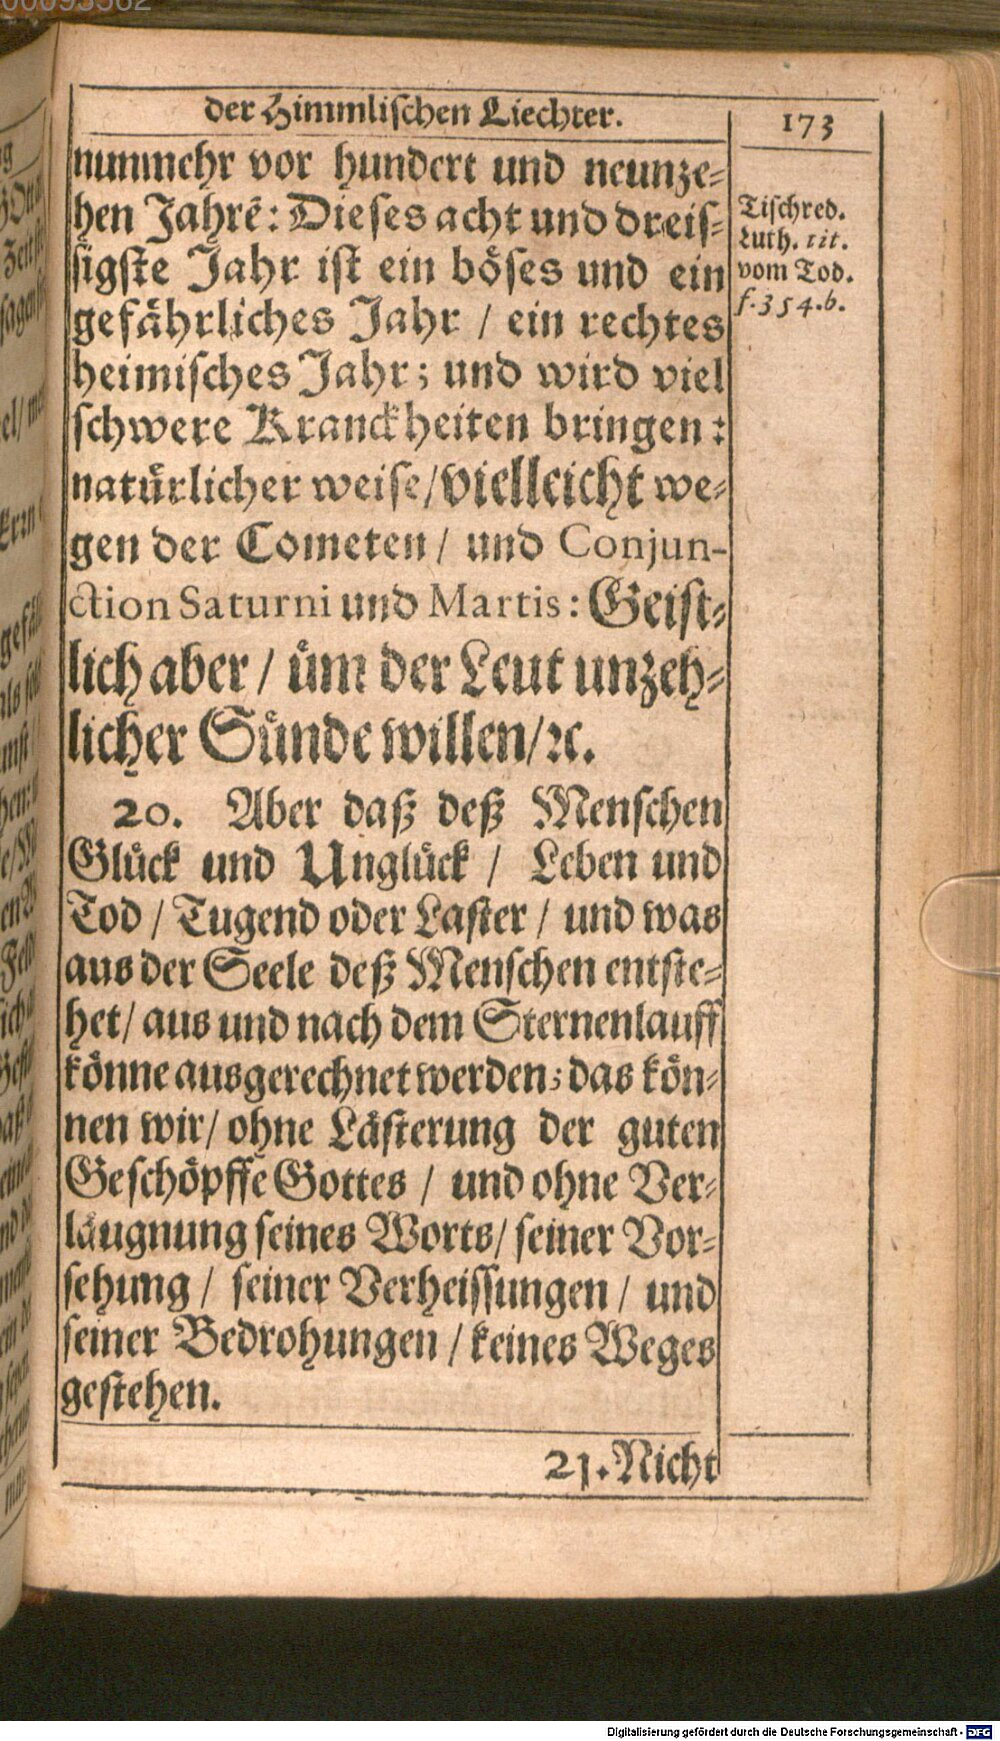 der Himmlischen Liechter.
173
nunmehr vor hundert und neunze-
hen Jahrē: Dieses acht und dreis-
sigste Jahr ist ein böses und ein
gefährliches Jahr / ein rechtes
heimisches Jahr; und wird viel
schwere Kranckheiten bringen:
natürlicher weise/vielleicht we-
gen der Cometen / und Conjun-
ction Saturni und Martis: Geist-
lich aber / üm der Leut unzeh-
licher Sünde willen/ꝛc.
20. Aber daß deß Menschen
Glück und Unglück / Leben und
Tod / Tugend oder Laster / und was
aus der Seele deß Menschen entste-
het/ aus und nach dem Sternenlauff
könne ausgerechnet werden; das kön-
nen wir/ ohne Lästerung der guten
Geschöpffe Gottes / und ohne Ver-
läugnung seines Worts/ seiner Vor-
sehung / seiner Verheissungen / und
seiner Bedrohungen / keines Weges
gestehen.
21. Nicht
Tischred.
Luth. tit.
vom Tod.
f. 354. b.
Digitalisierung gefördert durch die Deutsche Forschungsgemeinschaft - DFG